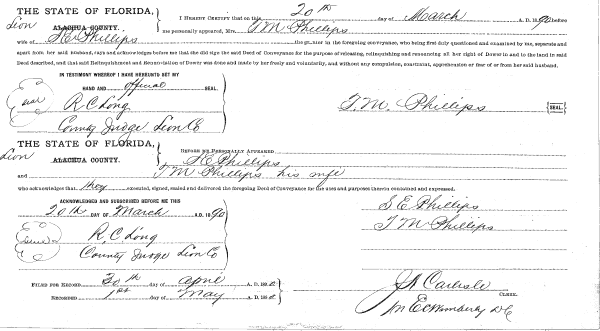 THE STATE OF FLORIDA,
Leon
ALACHUA COUNTY.
I HEREBY CERTIFY that on this 20th day of March A. D. 1890 before
me personally appeared, Mrs. T M Phillips
wife of S E Phillips the grantor in the foregoing conveyance, who being first duly questioned and examined by me, separate and
apart from her said husband, says and acknowledges before me that she did sign the said Deed of Conveyance for the purpose of releasing, relinquishing and renouncing all her right of Dower in and to the land in said
Deed described, and that said Relinquishment and Renunciation of Dower was done and made by her freely and voluntarily, and without any compulsion, constraint, apprehension or fear of or from her said husband.
IN TESTIMONY WHEREOF I HAVE HEREUNTO SET MY
HAND AND official SEAL.
Seal
R C Long
County Judge Leon Co
T. M. Phillips SEAL.
THE STATE OF FLORIDA,
Leon
ALACHUA COUNTY.
BEFORE ME PERSONALLY APPEARED
S E Phillips
and T M Phillips his wife
who acknowledge that they executed, signed, sealed and delivered the foregoing Deed of Conveyance for the uses and purposes therein contained and expressed.
ACKNOWLEDGED AND SUBSCRIBED BEFORE ME THIS
20th DAY OF March A. D. 1890
R, C Long
County Judge Leon Co
S E Phillips
T M Phillips
FILED FOR RECORD 30th day of April A. D. 1890
RECORDED 1st day of May A. D. 1890
J A Carlisle
CLERK.
D C